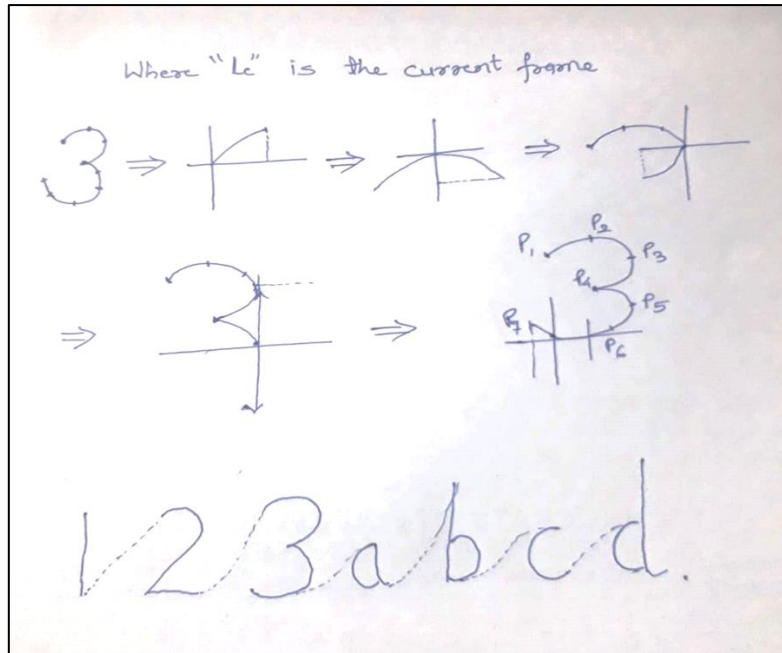 Where "Lc" is the current frame
3
P1 P2 P3 P4 P5 P6 P7
1 2 3 a b c d.